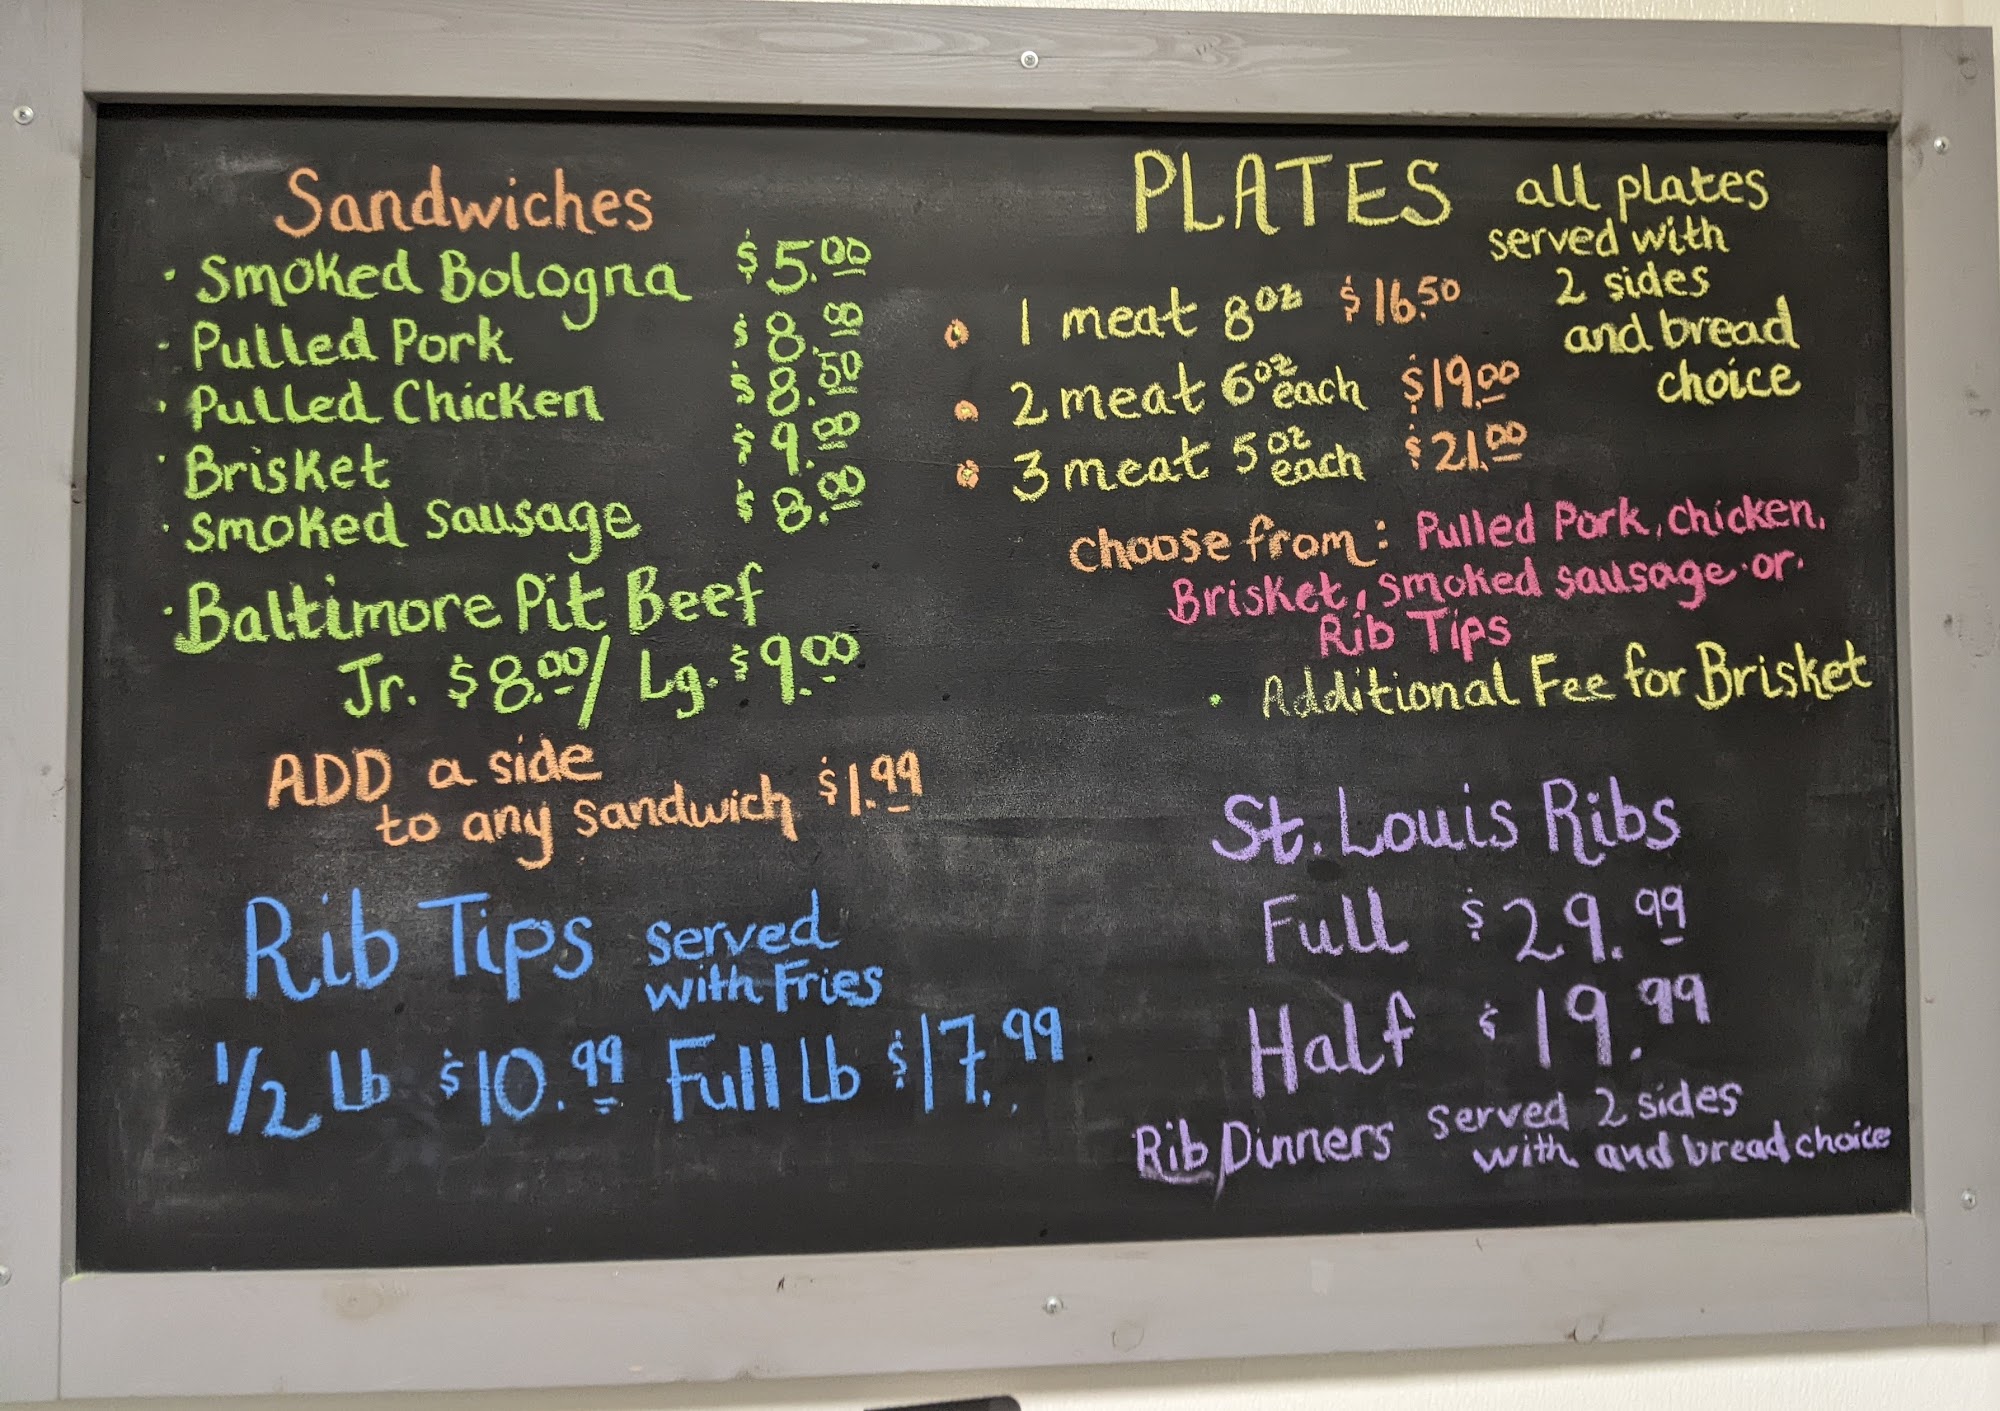 Sandwiches
· Smoked Bologna $5.00
· Pulled Pork $8.00
· Pulled Chicken $8.50
· Brisket $9.00
· Smoked Sausage $8.00
· Baltimore Pit Beef
Jr. $8.00/ Lg. $9.00
ADD a side
to any sandwich $1.99
Rib Tips served
with Fries
1/2 Lb $10.99 Full Lb $17.99
PLATES all plates
served with
2 sides
and bread
choice
1 meat 8oz $16.50
2 meat 6oz each $19.00
3 meat 5oz each $21.00
choose from: Pulled Pork, chicken,
Brisket, smoked sausage or
Rib Tips
· Additional Fee for Brisket
St. Louis Ribs
Full $29.99
Half $19.99
Rib Dinners served 2 sides
with and bread choice